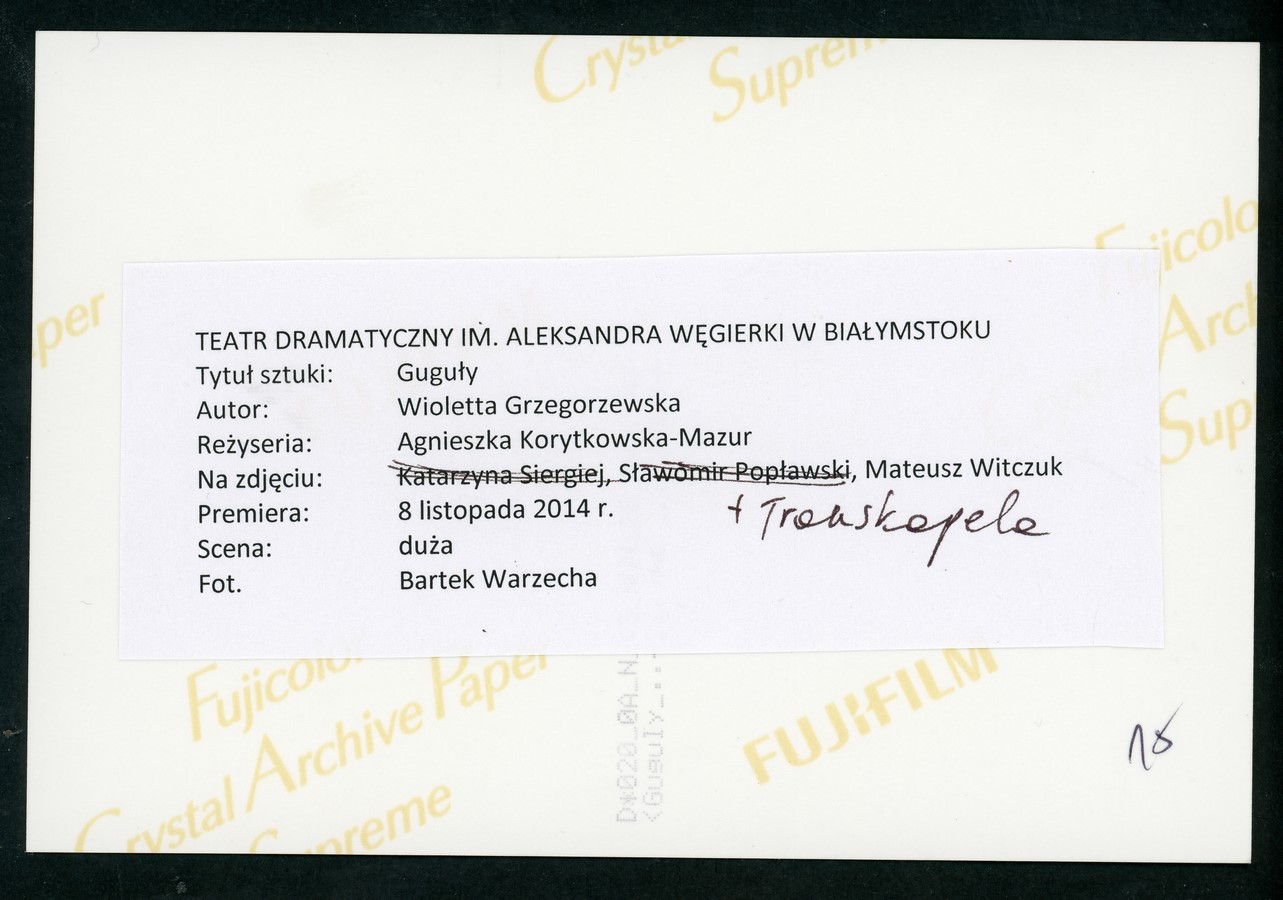 Crystal
Supreme
Fujicolo
Arch
Sup
per
TEATR DRAMATYCZNY IM. ALEKSANDRA WĘGIERKI W BIAŁYMSTOKU
Tytuł sztuki: Guguły
Autor: Wioletta Grzegorzewska
Reżyseria: Agnieszka Korytkowska-Mazur
Na zdjęciu: Katarzyna Siergiej, Sławomir Popławski, Mateusz Witczuk
+ Transkapela
Premiera: 8 listopada 2014 r.
Scena: duża
Fot. Bartek Warzecha
Fujicolor
Crystal Archive Paper
Supreme
FUJIFILM
D*020_0A_N
<Guguly_...